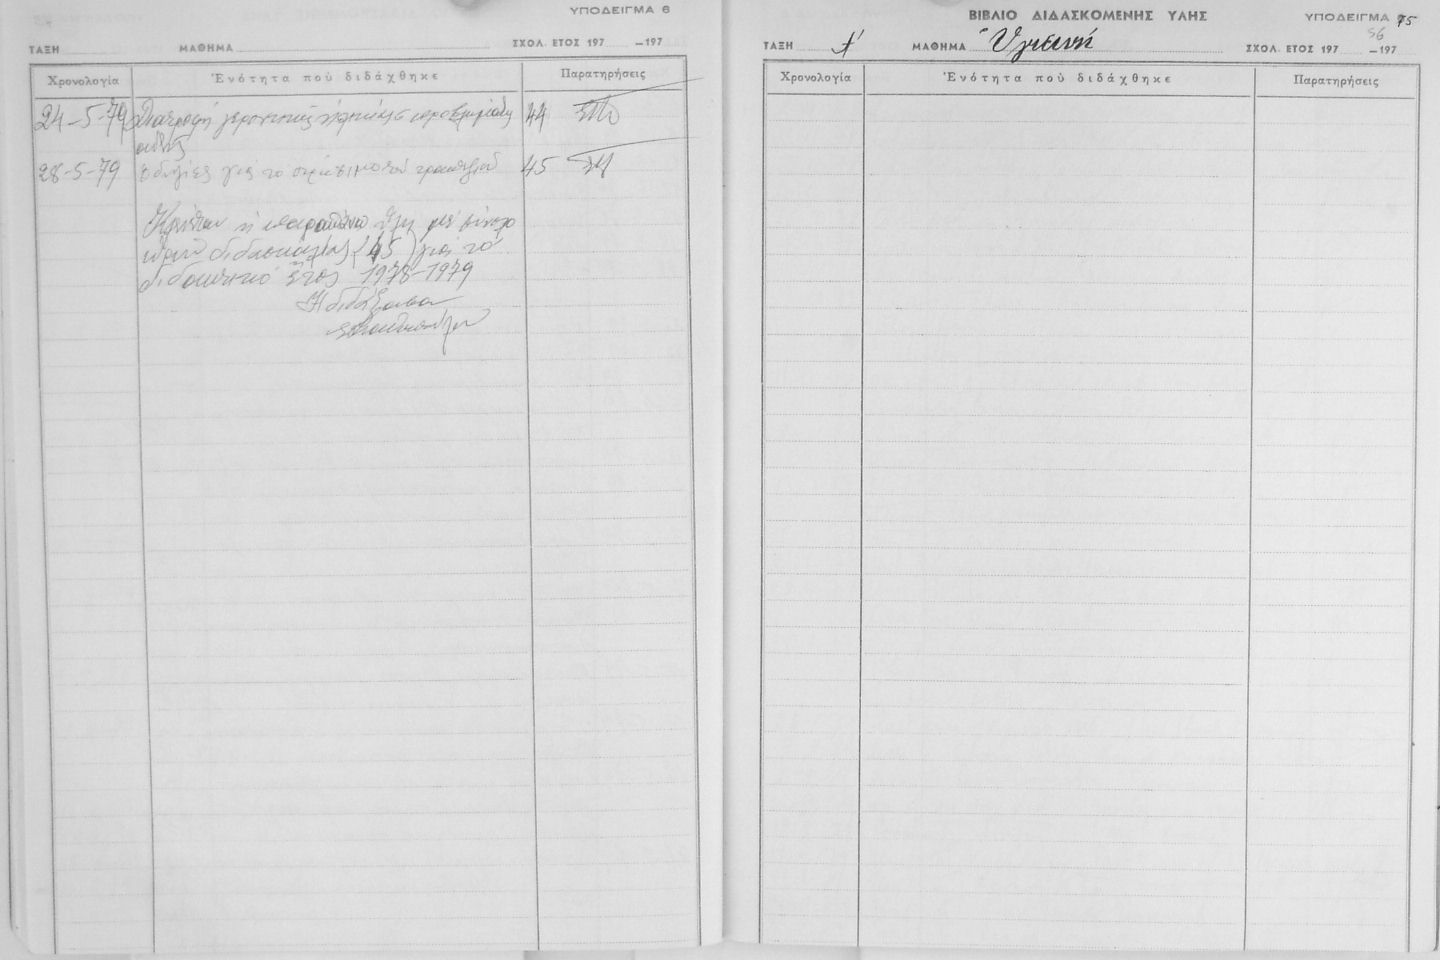 ΥΠΟΔΕΙΓΜΑ 6
ΤΑΞΗ ΜΑΘΗΜΑ ΣΧΟΛ. ΕΤΟΣ 197 –197
Χρονολογία Ἑνότητα ποὺ διδάχθηκε Παρατηρήσεις
24-5-79 Διατροφή γεροντικῆς ἡλικίας 44
28-5-79 Ὁδηγίες γιά τό στρώσιμο τοῦ τραπεζιοῦ 45
ἡ παραπάνω ὕλη μέ σύνολο
ὡρῶν διδασκαλίας (45) γιά τό
διδακτικό ἔτος 1978-1979
Ἡ διδάξασα
ΒΙΒΛΙΟ ΔΙΔΑΣΚΟΜΕΝΗΣ ΥΛΗΣ ΥΠΟΔΕΙΓΜΑ 75
56
ΤΑΞΗ Α' ΜΑΘΗΜΑ Ὑγιεινή ΣΧΟΛ. ΕΤΟΣ 197 –197
Χρονολογία Ἑνότητα ποὺ διδάχθηκε Παρατηρήσεις